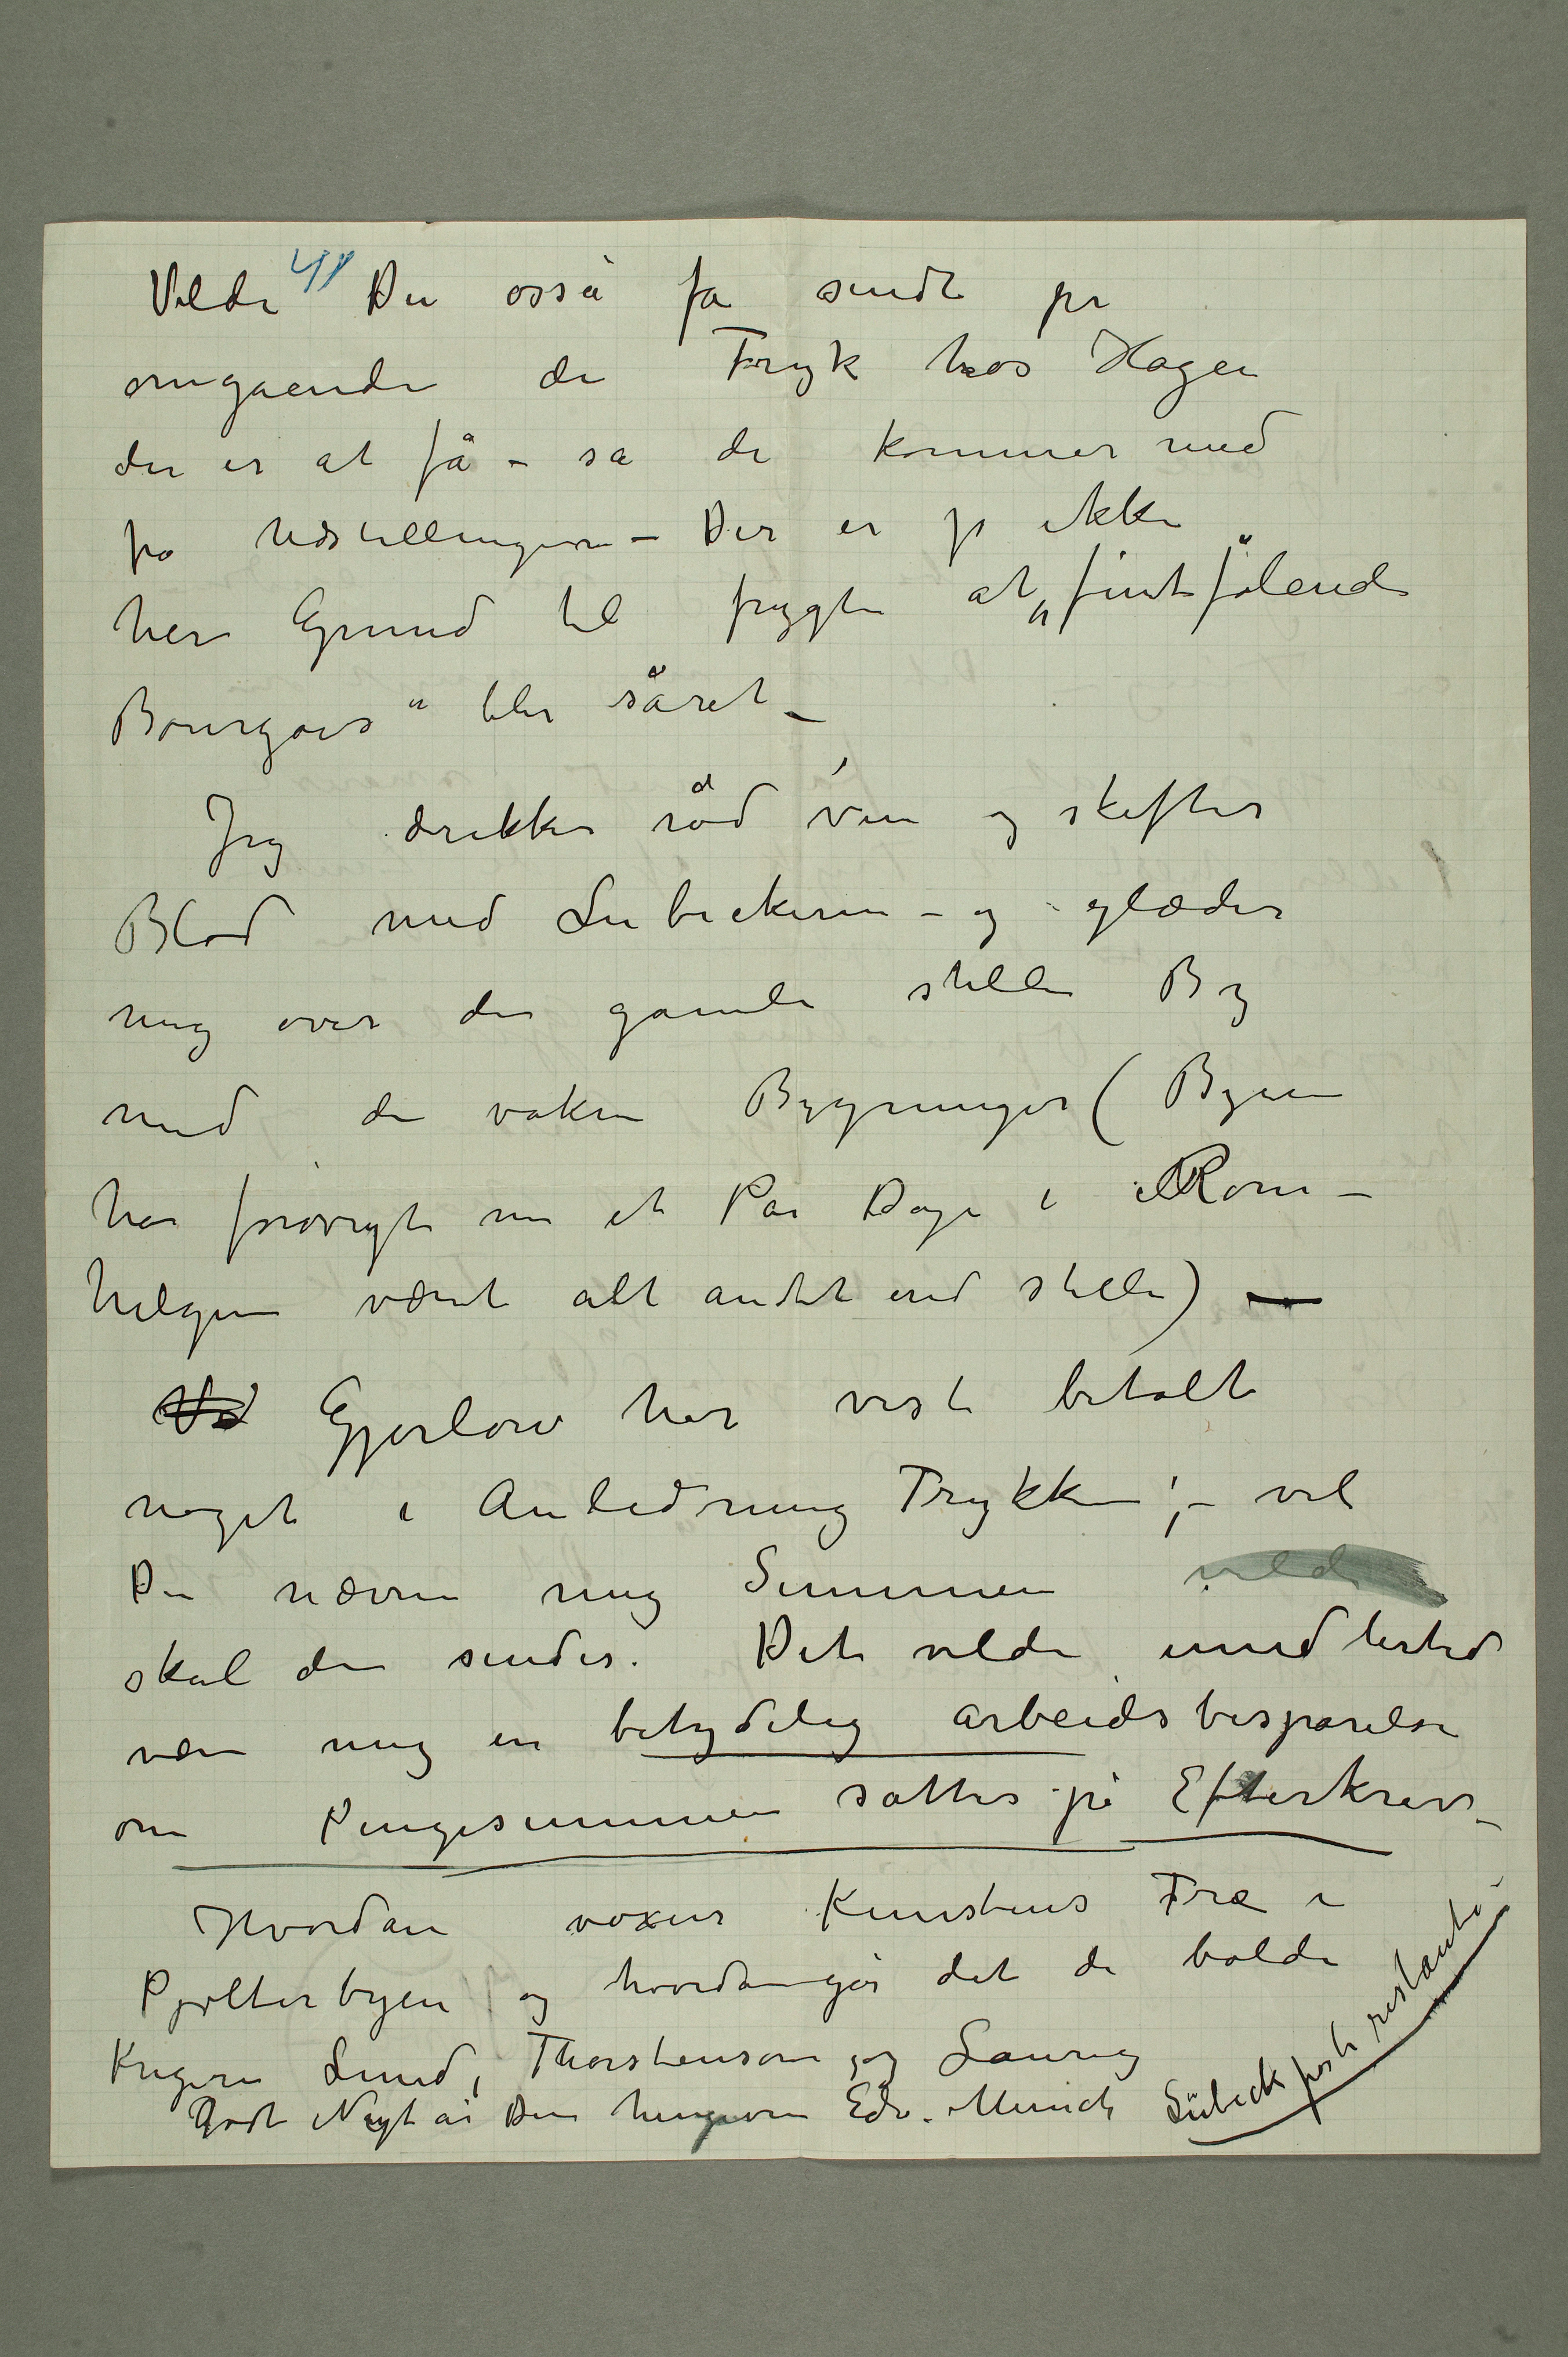 41
Vilde Du osså få sendt pr
omgående de Tryk hos Hagen
der er at få – så de kommer med
på Udstillingen – Der er jo ikke
her Grund til frygte at „fintfølende
Bourgois" blir såret –
Jeg drikker rød vin og skifter
Blod med Lubeckerne – og glæder
mig over den gamle stille By
med de vakre Bygninger (Byen
har forøvrigt nu et Par Dage i Rom-
helgen været alt andet end stille) –
Gjerløw har vist betalt
noget i Anledning Trykkene; – vil
Du nævne mig Summen vilde
skal den sendes. Det vilde imidlertid
være mig en betydelig arbeidsbesparelse
om Pengesummen sattes på Efterkrav –
Hvordan voxer Kunstens Træ i
Pjolterbyen og hvordan går det de bolde
Krigere Lund, Thorstenson og Laurig
Godt Nyt år Din hengivne Edv. Munch
Lübeck poste restante